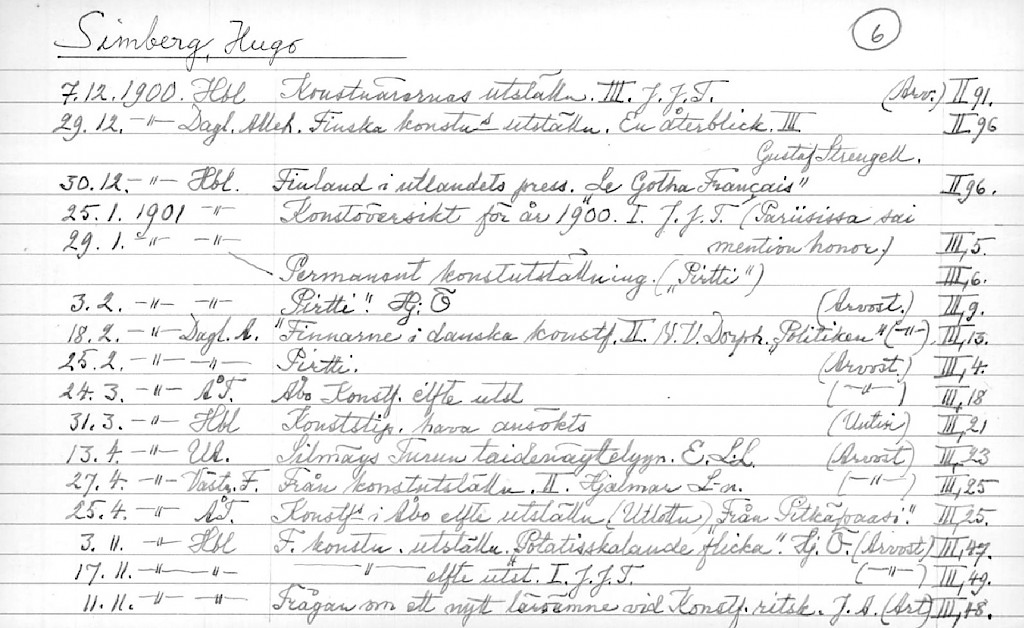 Simberg, Hugo 6
7.12.1900. Hbl Konstnärernas utställn. III. J.J.T. (Arv.) II 91.
29.12. -"- Dagl. Alleh. Finska konstn:s utställn. En återblick. III II 96
Gustaf Strengell.
30.12. -"- Hbl. Finland i utlandets press. „Le Gotha Français" II 96.
25.1. 1901 -"- Konstöversikt för år 1900. I. J.J.T. (Pariisissa sai
29.1. -"- -"- mention honor.) III,5.
Permanent konstutställning. („Pirtti") III,6.
3.2. -"- -"- „Pirtti". Hj. Ö (Arvost.) III,9.
18.2. -"- Dagl. A. "Finnarne i danska konstf. II. N.V. Dorph. „Politiken" (-"-). III,13.
25.2. -"- -"- Pirtti. (Arvost.) III,4.
24.3. -"- ÅT. Åbo Konstf. elfte utst (-"-) III,18
31.3. -"- Hbl Konststip. hava ansökts (Uutin) III,21
13.4. -"- UA. Silmäys Turun taidenäyttelyyn. E. L:L. (Arvost) III,23
27.4. -"- Västr. F. Från konstutställn. II. Hjalmar L-n. (-"-) III,25
25.4. -"- ÅT. Konstf:s i Åbo elfte utställn (Utlottn) „Från Pitkäpaasi". III,25.
3.11. -"- Hbl F. konstn. utställn. „Potatisskalande flicka". Hj. Ö. (Arvost) III,47.
17.11. -"- -"- -"- elfte utst. I. J.J.T. (-"-) III,49.
11.11. -"- -"- Frågan om ett nytt läroämne vid Konstf. ritsk. J.A. (Art) III,48.